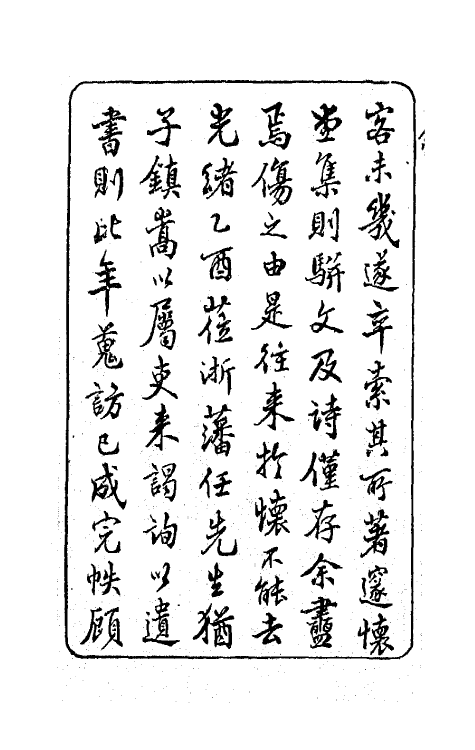 客未幾遂卒索其所著邃懷
堂集則駢文及詩僅存余盡
焉傷之由是往来於懷不能去
光緒乙酉莅浙藩任先生猶
子鎮嵩以屬吏来謁詢以遺
書則比年蒐訪已成完帙顧